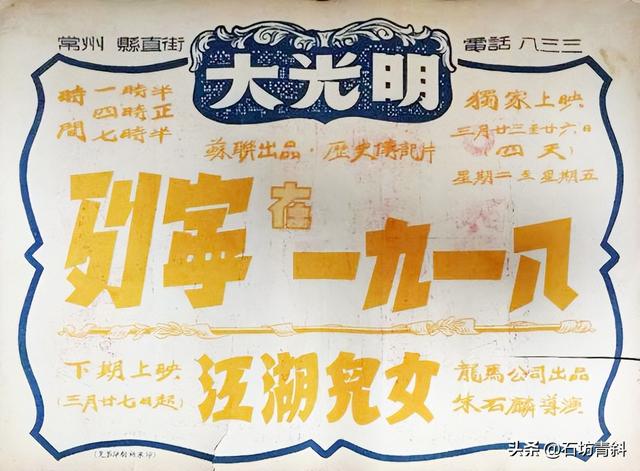 常州 縣直街
大光明
電話 八三三
時間 一時半
四時正
七時半
獨家上映
三月廿三至廿六日
(四天)
星期二至星期五
蘇聯出品·歷史傳記片
列寧在一九一八
下期上映
(三月廿七日起)
江湖兒女
龍馬公司出品
朱石麟導演
头条 @石坊青斜